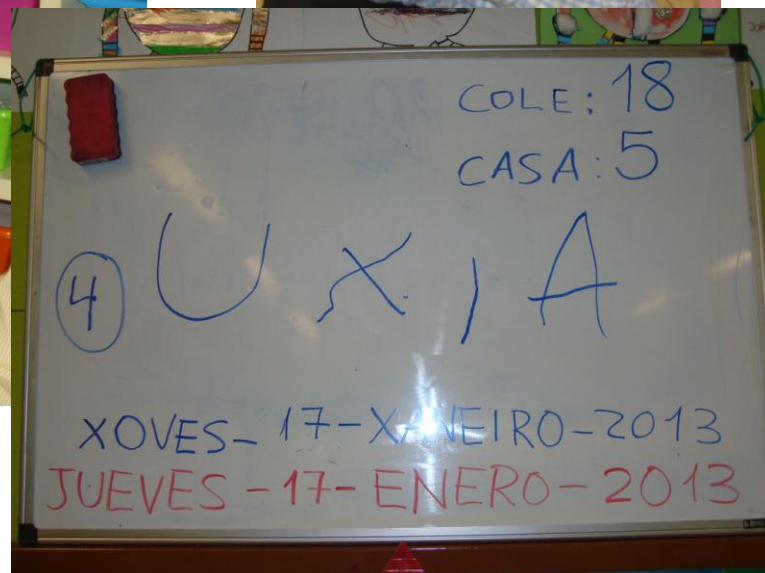 COLE: 18
CASA: 5
4 UXIA
XOVES- 17-XANEIRO-2013
JUEVES-17-ENERO-2013